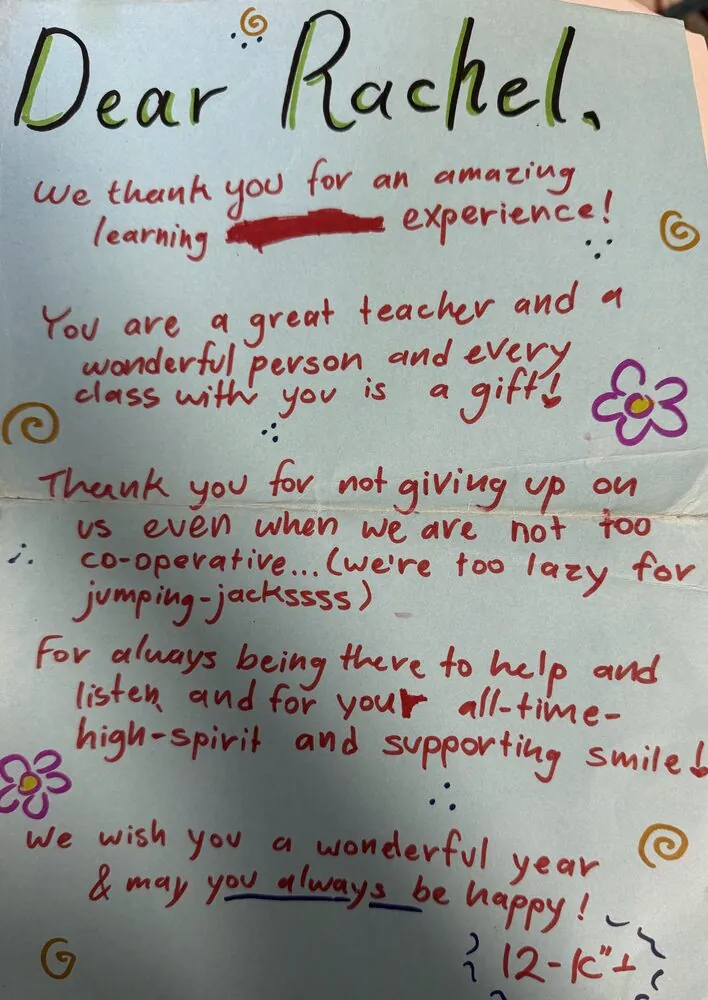 Dear Rachel,
We thank you for an amazing
learning experience!
You are a great teacher and a
wonderful person and every
class with you is a gift!
Thank you for not giving up on
us even when we are not too
co-operative... (we're too lazy for
jumping-jackssss)
For always being there to help and
listen, and for your all-time-
high-spirit and supporting smile!
We wish you a wonderful year
& may you always be happy!